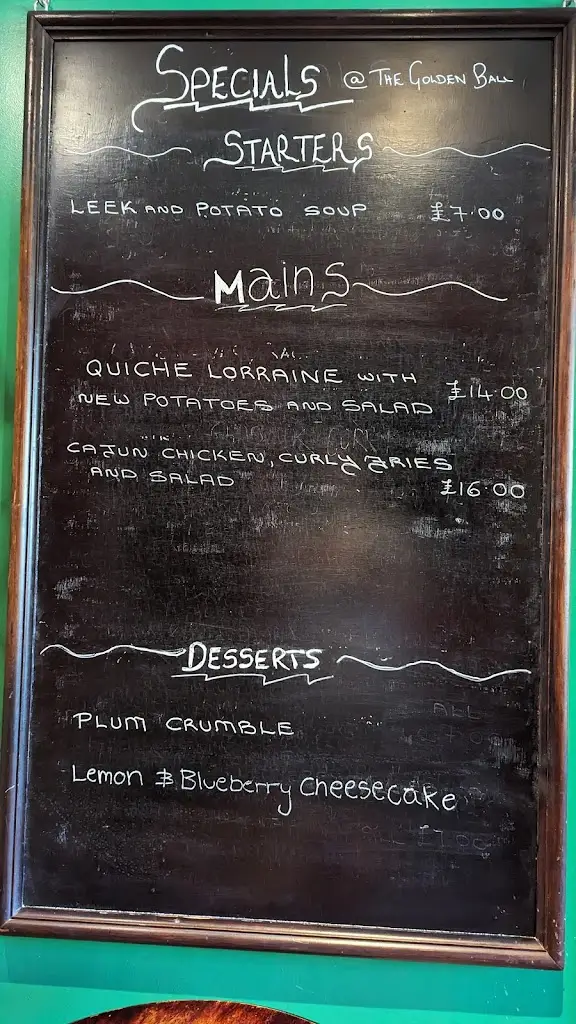 SPECIALS @ THE GOLDEN BALL
STARTERS
LEEK AND POTATO SOUP £7.00
Mains
QUICHE LORRAINE WITH
NEW POTATOES AND SALAD £14.00
CAJUN CHICKEN, CURLY FRIES
AND SALAD £16.00
DESSERTS
ALL
PLUM CRUMBLE
Lemon & Blueberry Cheesecake